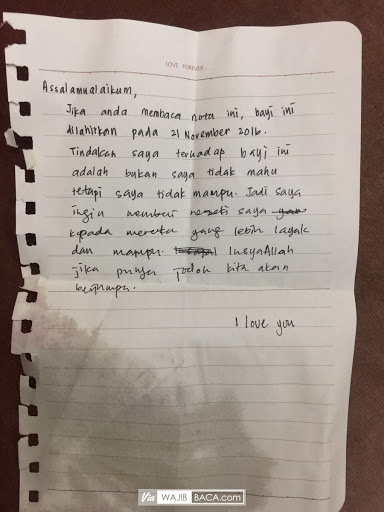 LOVE FOREVER
Assalamualaikum,
Jika anda membaca nota ini, bayi ini
dilahirkan pada 21 November 2016.
Tindakan saya terhadap bayi ini
adalah bukan saya tidak mahu
tetapi saya tidak mampu. Jadi saya
ingin memberi rezeki saya yan
kepada mereka yang lebih layak
dan mampu. InsyaAllah
jika punya jodoh kita akan
berjumpa.
I love you
Via WAJIBBACA.com